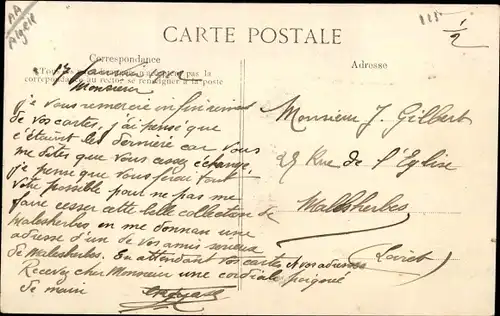 AA
Algérie
118
1/2
CARTE POSTALE
Correspondance
Tous les pays étrangers n'acceptant pas la
correspondance au recto, se renseigner à la poste
Adresse
17 Janvier
Monsieur
je vous remercie infiniment
de vos cartes, j'ai pensé que
c'étaint les dernière car vous
me dites que vous assez échangé,
je pense que vous ferai tout
votre possible pour ne pas me
faire cesser cette belle collection de
Malesherbes en me donnan une
adresse d'un de vos amis sérieux
de Malesherbes. En attendant vos cartes
Recevez cher Monsieur une cordiale poigné
de main
Monsieur J. Gilbert
25 Rue de l'Eglise
Malesherbes
(Loiret)